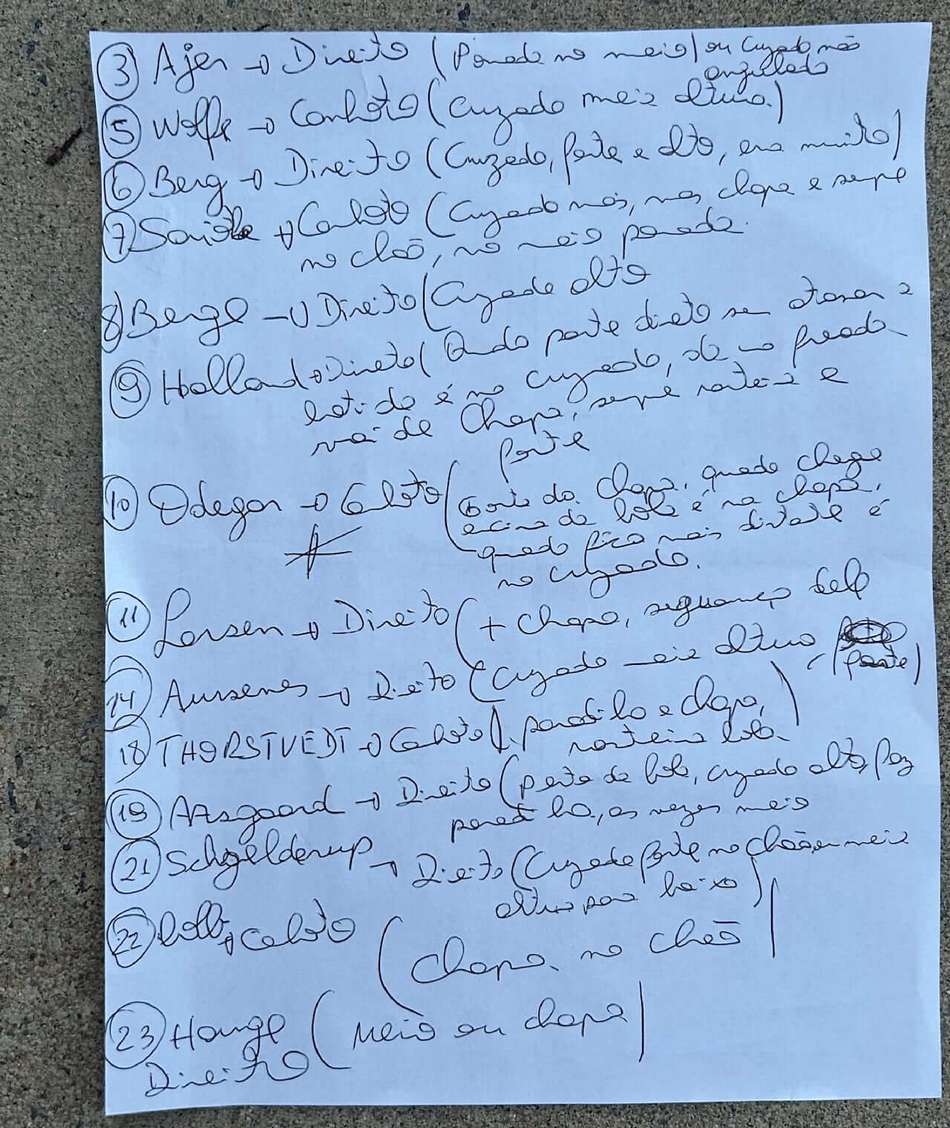 3 Ajer → Direito (Parada no meio) ou cuzado não
angulado
5 Wolfe → Canhoto (Cruzado meia altura)
6 Berg → Direito (Cruzado, forte e alto, era muito)
7) → Canhoto (Cruzado mas, mas chapa e sempre
no chão, no meio parada.
8) Berge → Direito (Cruzado alto
9 Holland → Direito ( Quando parte direto sem atrasar a
batida é no cruzado, se
vai de Chapa, sempre rasteira e
forte
10 Odegar → Canhoto (Gosta da Chapa, quando chega
acima da bola é na chapa,
quando fica mais distante é
no cruzado.
11 Larsen → Direito (+ chapa, segurança
14) Aursenes → Direito (Cruzado meia altura (forte)
18) THORSTVEDT → Canhoto ( paradinha e chapa,
rasteira bola
19 Aasgaard → Direito (perto da bola, cruzado alto, faz
paradinha, as vezes meio
21 Schjelderup → Direito (Cruzado forte no chão ou meia
altura para baixo)
22 → Canhoto
(Chapa no chão)
23 Hauge (Meio ou chapa)
Direito